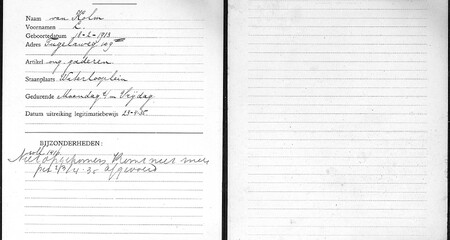 Naam van Kolm
Voornamen L.
Geboortedatum 18-2-1913
Adres
Artikel ong. gaderen.
Staanplaats Waterlooplein
Gedurende Maandag t/m Vrijdag
Datum uitreiking legitimatiebewijs 29-4-35
BIJZONDERHEDEN:
Niet opgekomen. Komt niet meer
per afgevoerd